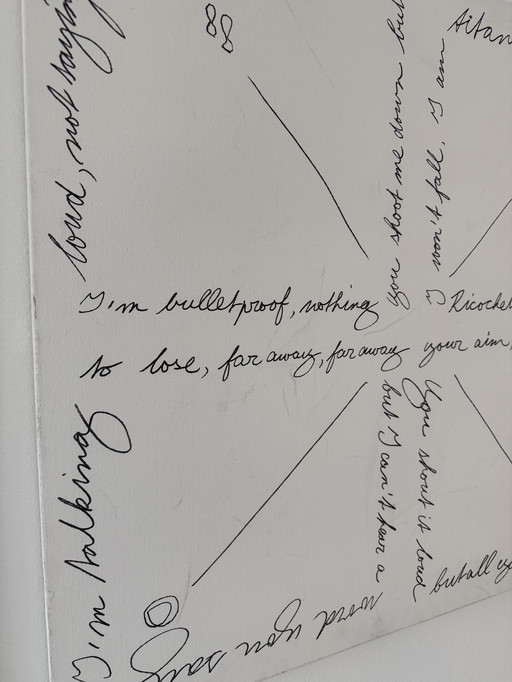 You shout it loud
but I can't hear a
word you say
I'm talking
loud, not saying
I'm bulletproof, nothing
to lose, far away, far away
Ricochet
your aim,
You shoot me down but
I won't fall, I am
Titan
but all yo
88